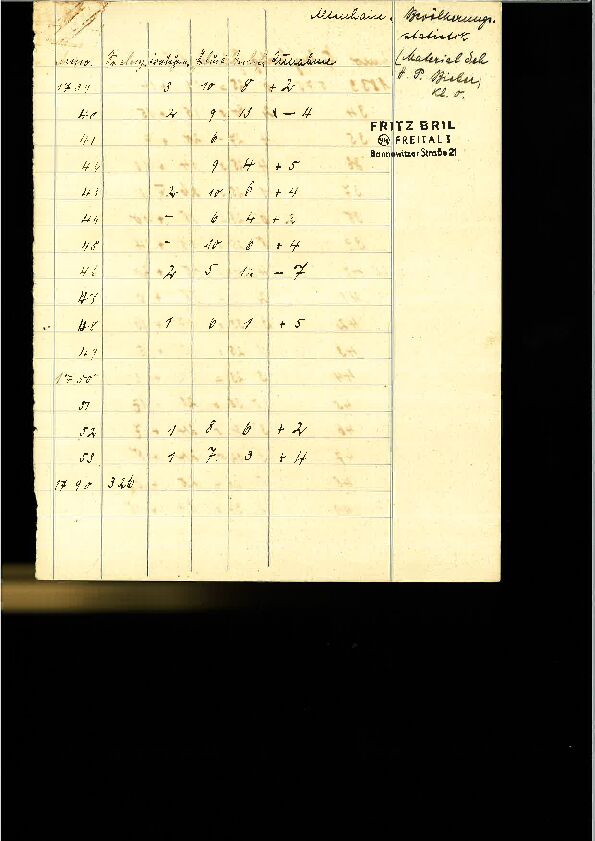 Bevölkerungs-
statistik
(Material des
P. Bieler,
Kl. O.
FRITZ BRIL
FREITAL 1
Bannewitzer Straße 21
Anno. Zunahme
1739 3 10 8 + 2
40 2 9 13 - 4
41 6
42 9 4 + 5
43 2 10 6 + 4
44 - 6 4 + 2
45 - 10 6 + 4
46 2 5 12 - 7
47
48 1 6 1 + 5
49
1750
51
52 1 8 6 + 2
53 1 7 3 + 4
1790